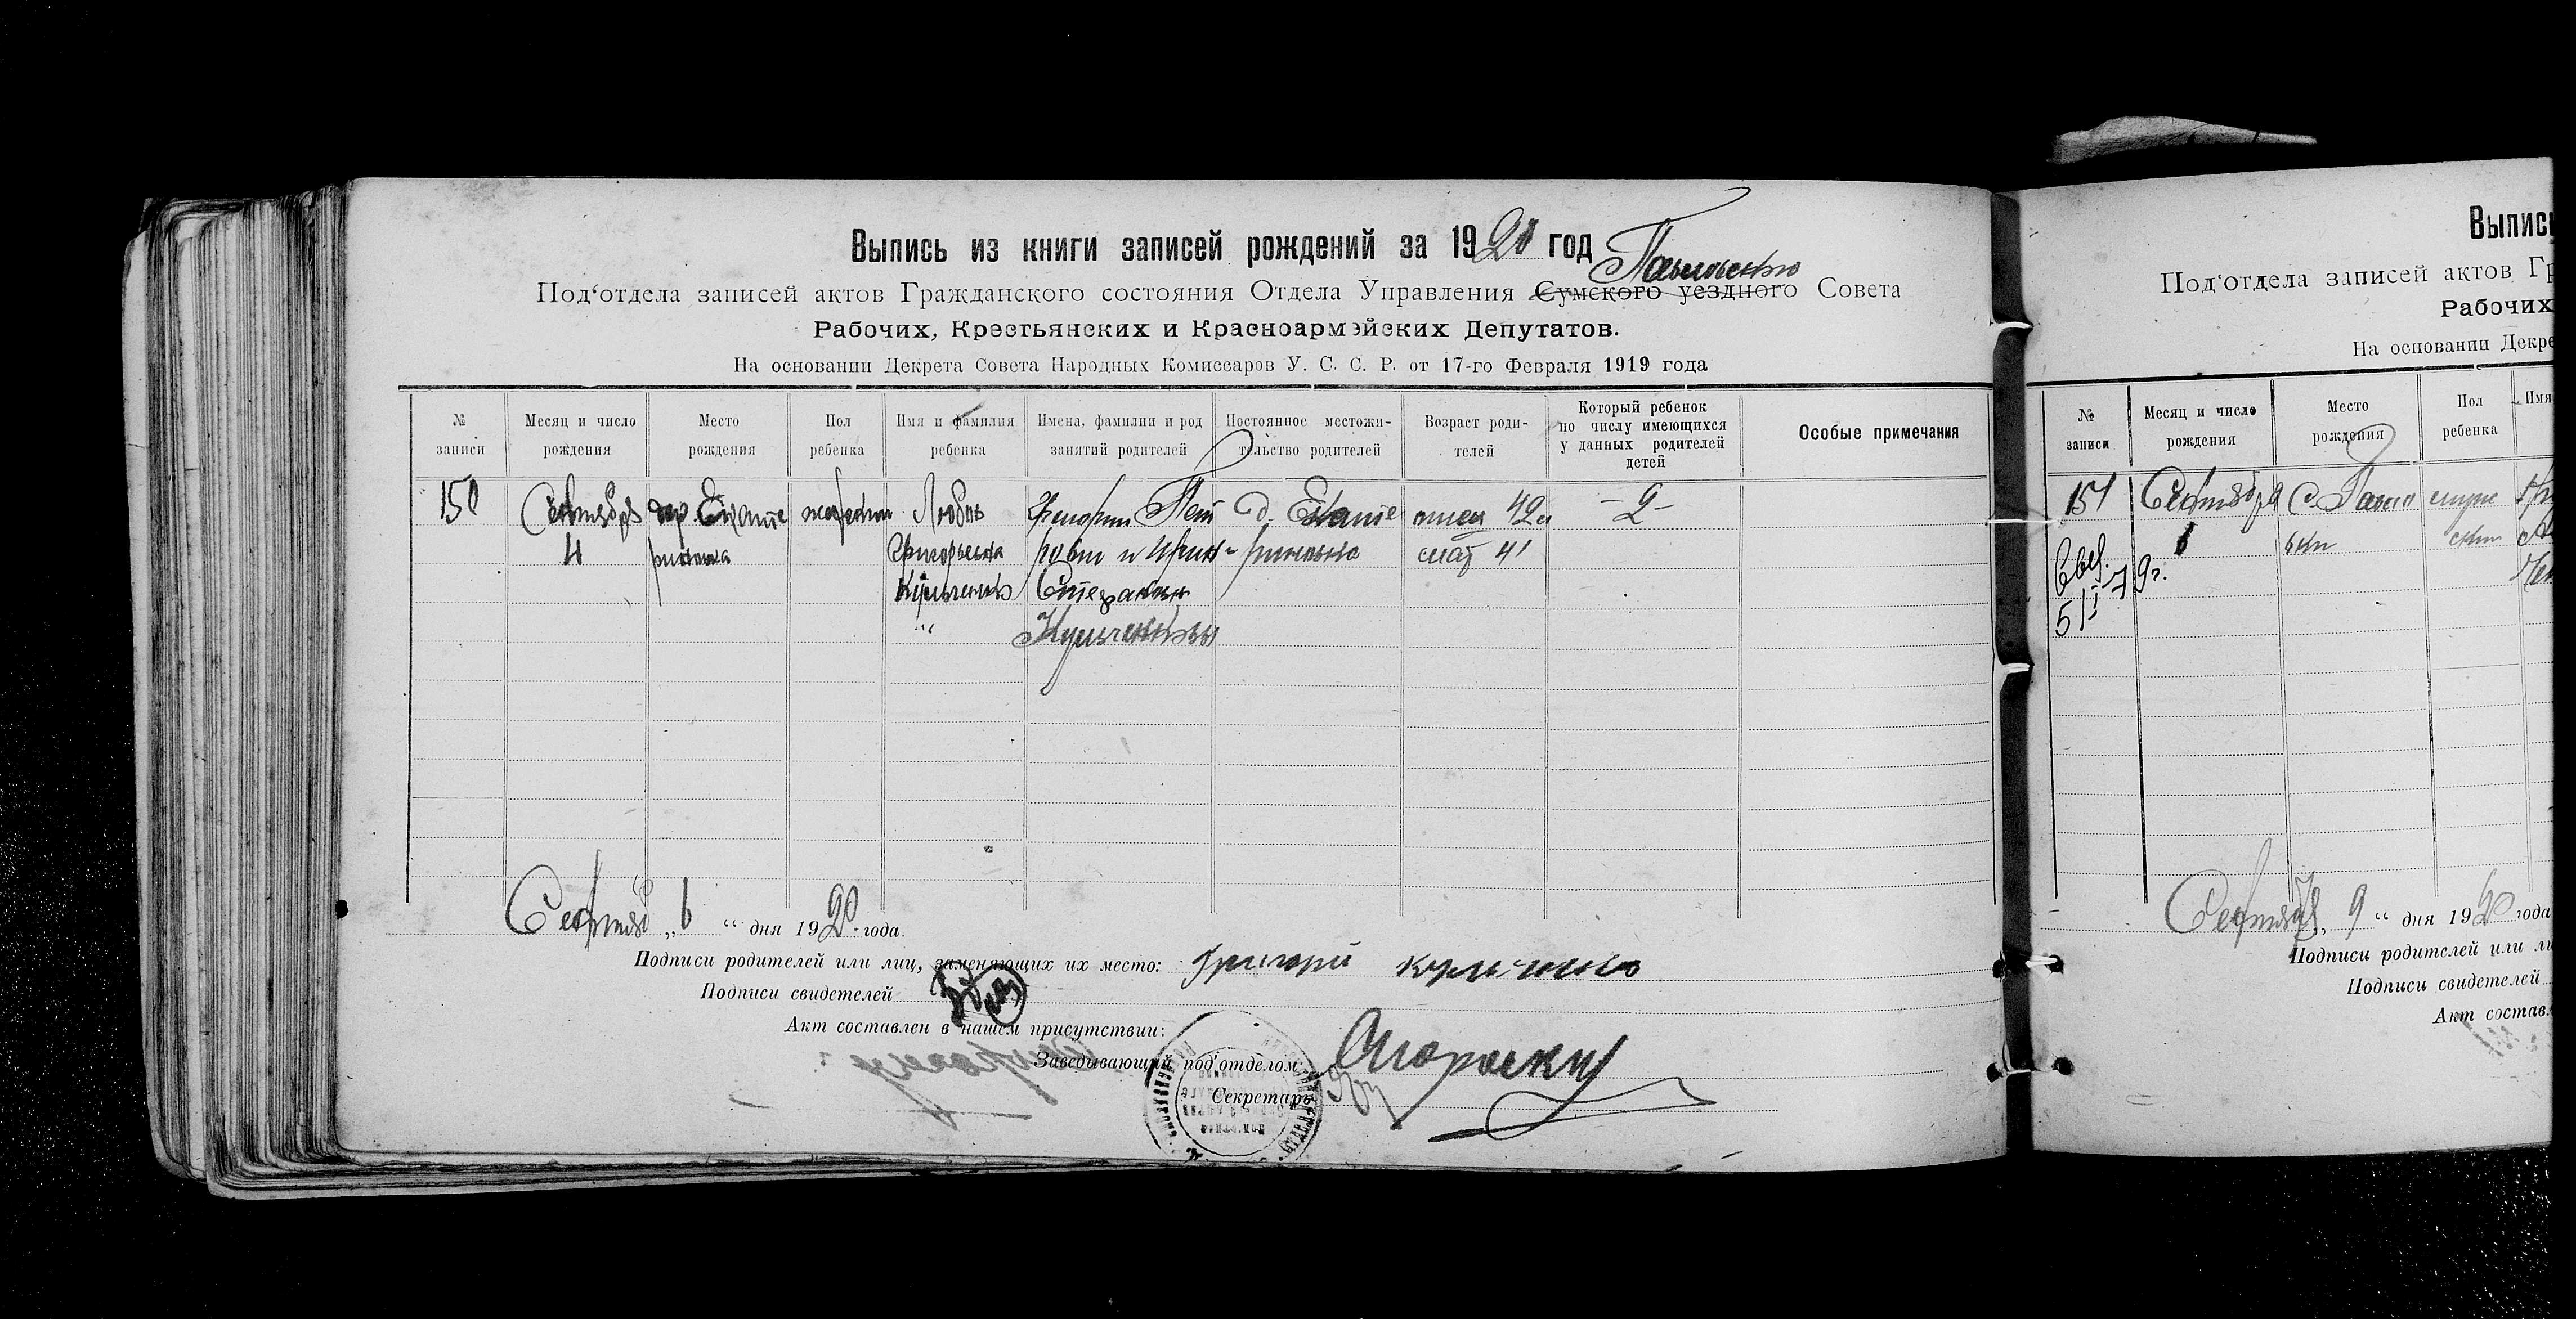 Выпись из книги записей рождений за 1920 год
Под'отдела записей актов Гражданского состояния Отдела Управления Сумского уездного Совета
Рабочих, Крестьянских и Красноармэйских Депутатов.
На основании Декрета Совета Народных Комиссаров У. С. С. Р. от 17-го Февраля 1919 года
№ записи
Месяц и число рождения
Место рождения
Пол ребенка
Имя и фамилия ребенка
Имена, фамилии и род занятий родителей
Постоянное местожительство родителей
Возраст родителей
Который ребенок по числу имеющихся у данных родителей детей
Особые примечания
150
Сентябрь
4
дер. Екате
риновка
женский
Любовь
Григорьевна
Кульченко
"
Григорий Пет
рович и Ирина
Степановна
Кульченковы
д. Екате
риновка
отец 42
мать 41
- 2 -
Сентяб „ 6 “ дня 1920 года.
Подписи родителей или лиц, заменяющих их место: Григорий Кульченко
Подписи свидетелей
Акт составлен в нашем присутствии:
Заведывающий под'отделом
Секретарь
Выпис
Под'отдела записей актов Гр
Рабочих
На основании Декре
№ записи
Месяц и число рождения
Место рождения
Пол ребенка
Имя
151
Сентября
С.
Свед.
5/I-79г.
Сентяб „ 9 “ дня 1920 года
Подписи родителей или ли
Подписи свидетелей
Акт составл